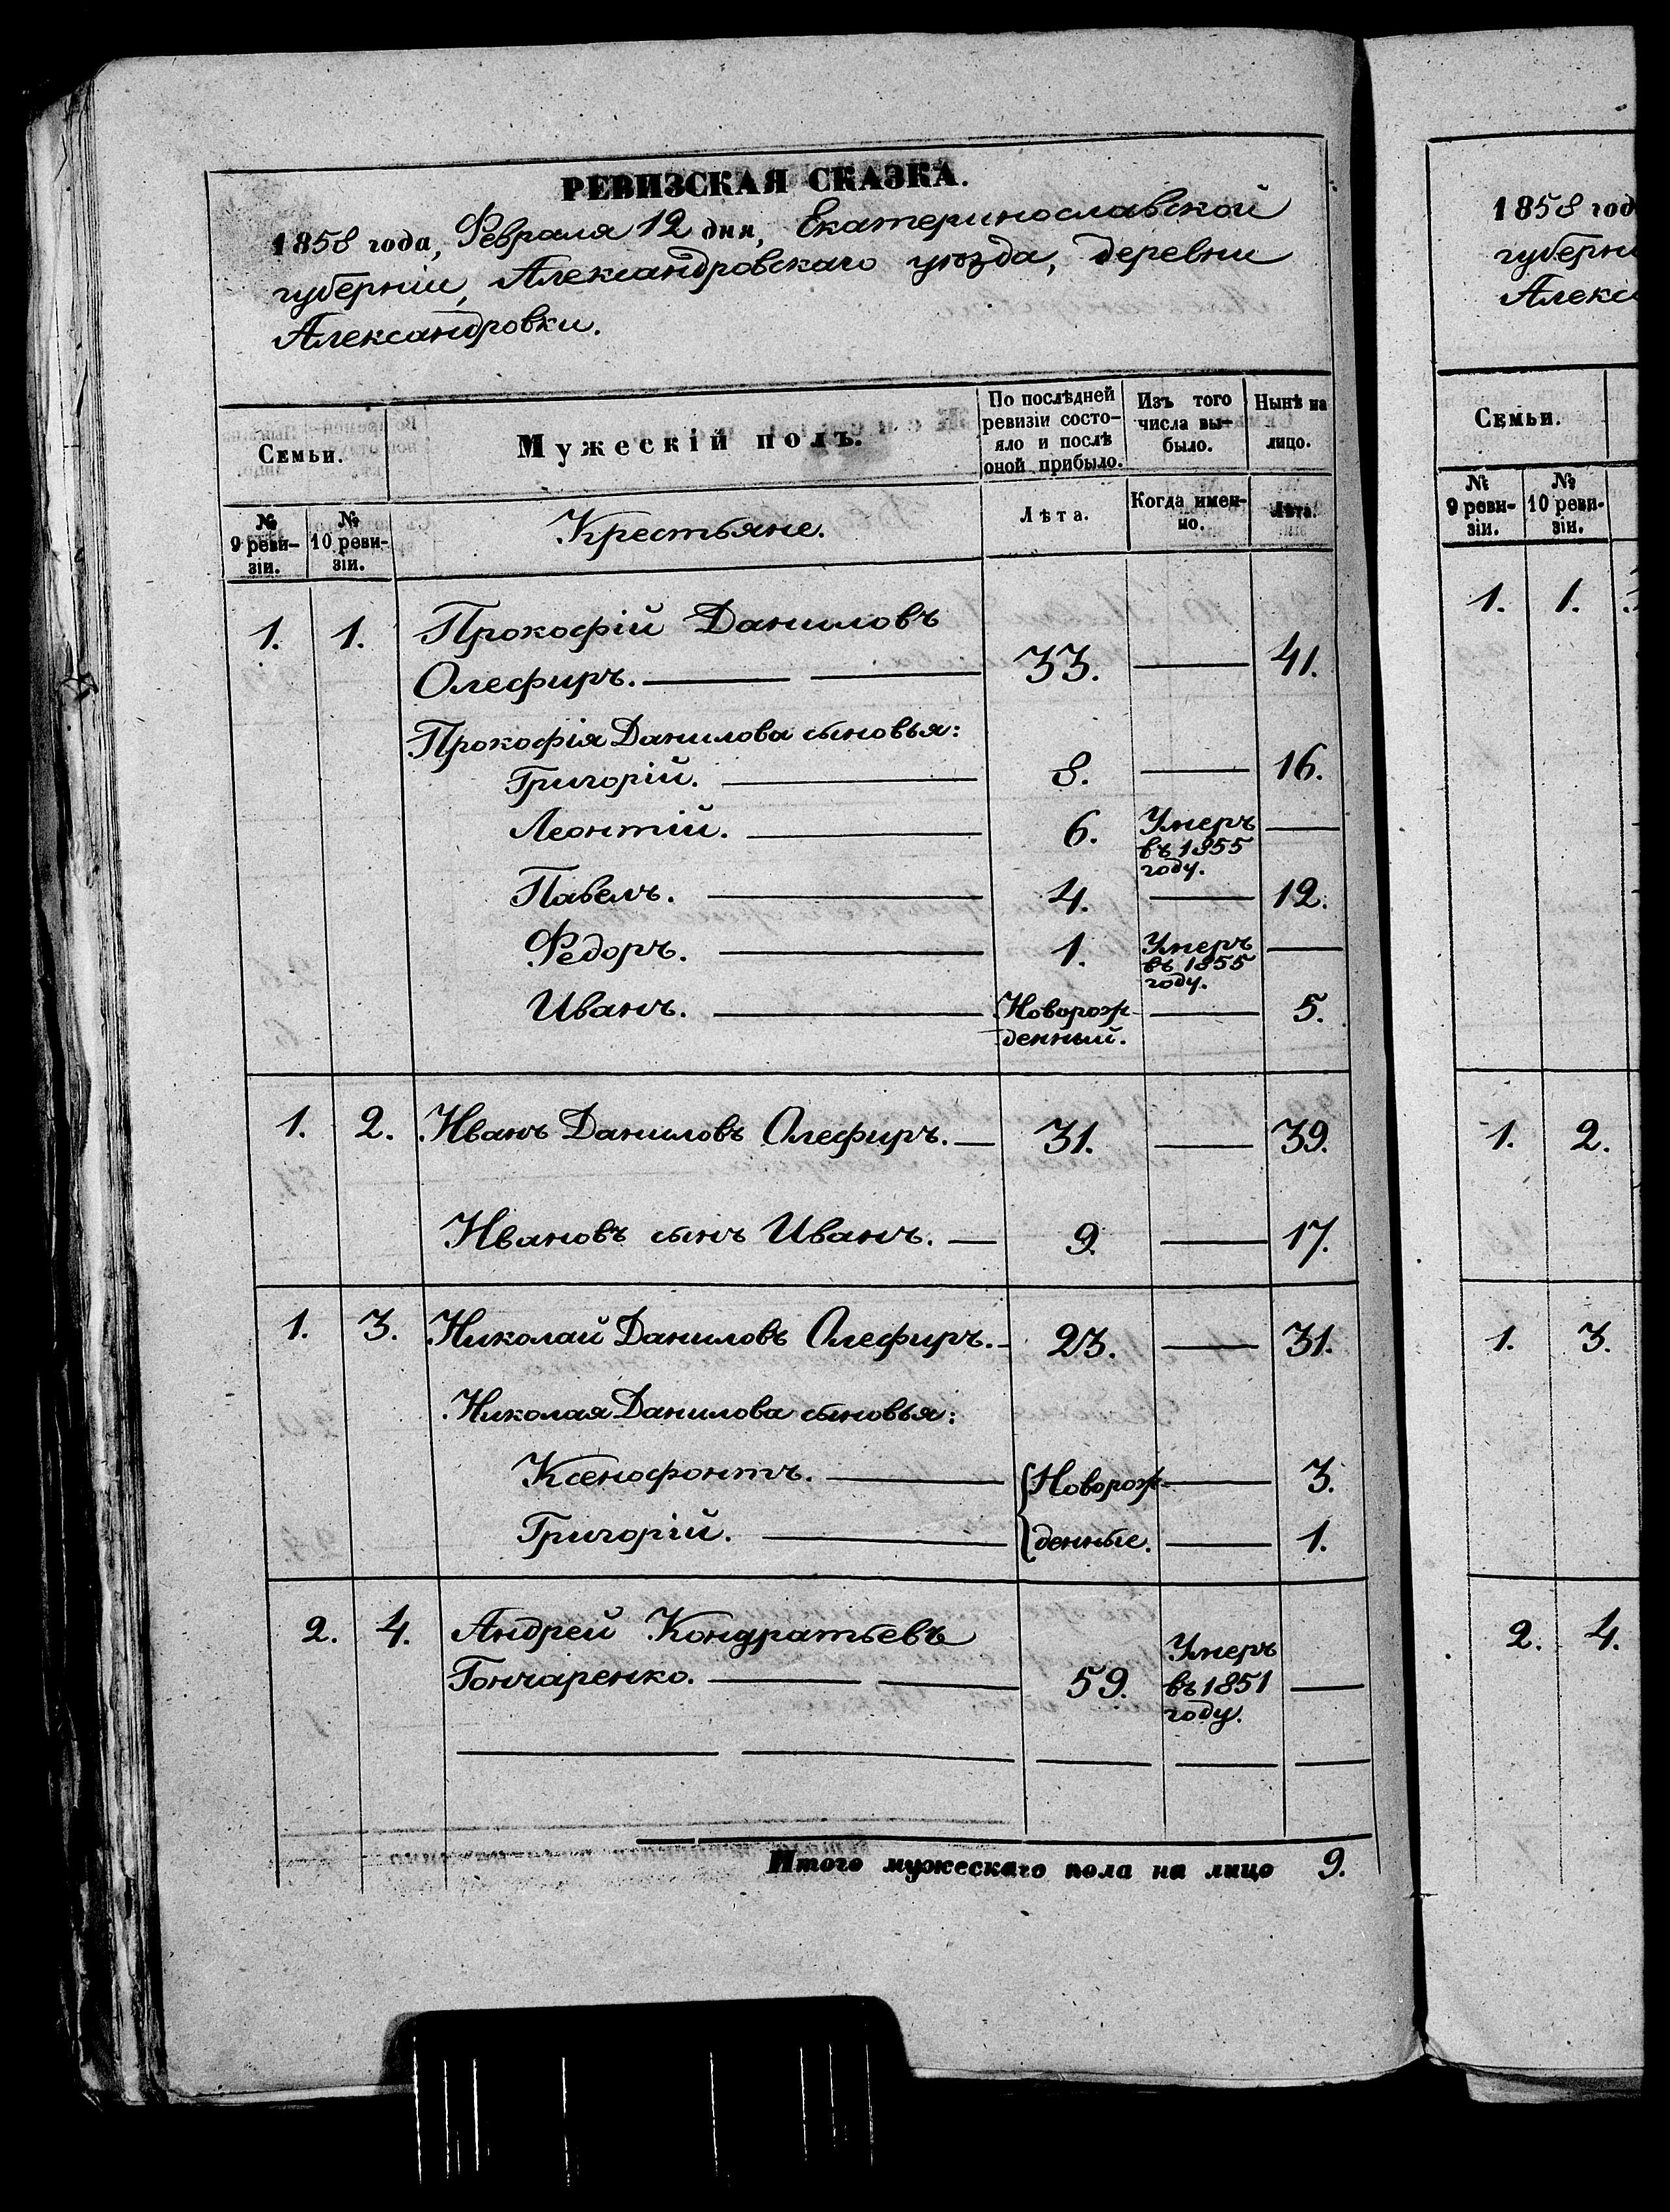 РЕВИЗСКАЯ СКАЗКА.
1858 года, Февраля 12 дня, Екатеринославской
губерніи, Александровскаго уѣзда, деревни
Александровки.
Семьи.
Мужескій полъ.
По послѣдней
ревизіи состо-
яло и послѣ
оной прибыло.
Изъ того
числа вы-
было.
Нынѣ на
лицо.
№
9 реви-
зіи.
№
10 реви-
зіи.
Крестьяне.
Лѣта.
Когда имен-
но.
Лѣта.
1. 1. Прокофій Даниловъ
Олефиръ. 33. 41.
Прокофія Данилова сыновья:
Григорій. 8. 16.
Леонтій. 6. Умеръ
въ 1855
году.
Павелъ. 4. 12.
Федоръ. 1. Умеръ
въ 1855
году.
Иванъ. Новорож- 5.
денный.
1. 2. Иванъ Даниловъ Олефиръ. 31. 39.
Ивановъ сынъ Иванъ. 9. 17.
1. 3. Николай Даниловъ Олефиръ. 23. 31.
Николая Данилова сыновья:
Ксенофонтъ. Новорож- 3.
Григорій. денные. 1.
2. 4. Андрей Кондратьевъ
Гончаренко. 59. Умеръ
въ 1851
году.
Итого мужескаго пола на лицо 9.
1858 год
губерн
Алекса
Семьи.
№
9 реви-
зіи.
№
10 реви-
зіи.
1. 1.
1. 2.
1. 3.
2. 4.